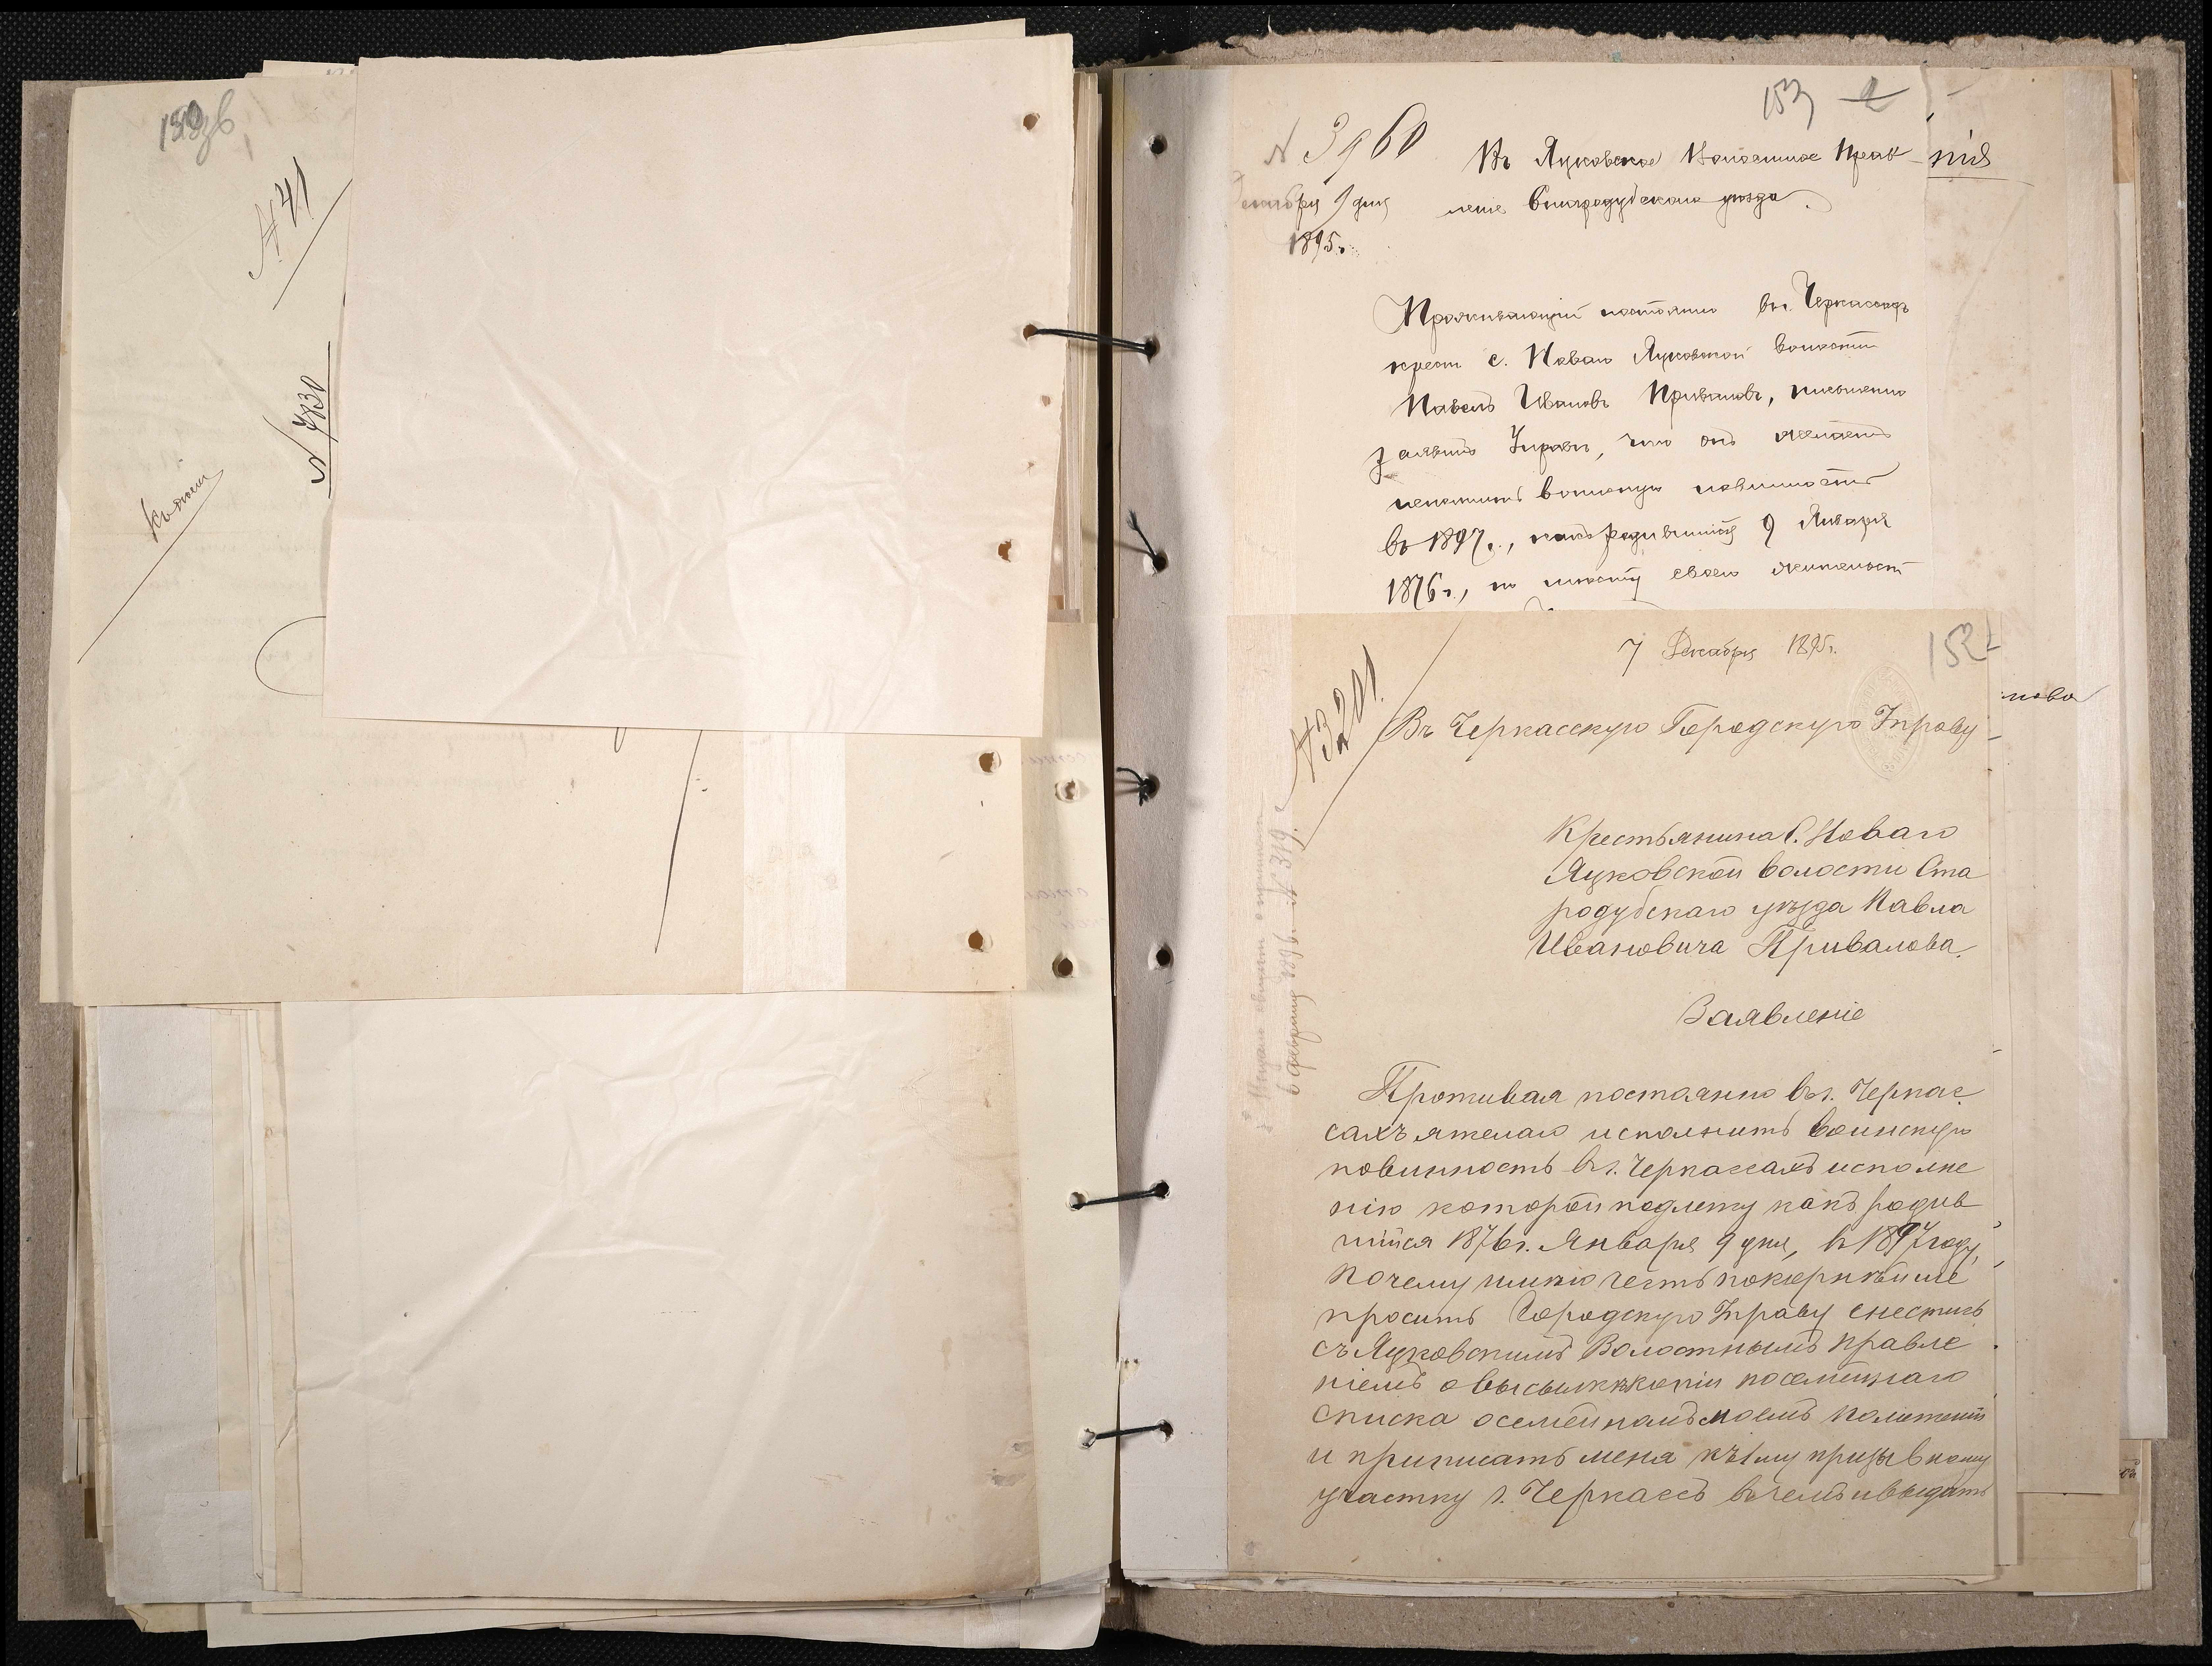 № 41
№ 7830
153
№ 3960
Въ Яцковское Волостное Прав-
леніе Стародубскаго уѣзда.
Декабря 9 дня
1895 г.
Проживающій постоянно въ г. Черкассахъ
крест. с. Новаго Яцковской волости
Павелъ Ивановъ Приваловъ, письменно
заявилъ Управѣ, что онъ желаетъ
исполнить воинскую повинность
въ 1897 г., какъ родившійся 9 Января
1876 г., по мѣсту своего жительст
7 Декабря 1895 г.
152
№ 3201.
Въ Черкасскую Городскую Управу
Крестьянина с. Новаго
Яцковской волости Ста
родубскаго уѣзда Павла
Ивановича Привалова.
Заявленіе
Проживая постоянно въ г. Черкас
сахъ я желаю исполнить воинскую
повинность въ г. Черкассахъ исполне
нію которой подлежу какъ родив
шійся 1876 г. Января 9 дня, въ 1897 году,
почему имѣю честь покорнѣйше
просить Городскую Управу снестись
съ Яцковскимъ Волостнымъ Правле
ніемъ о высылкѣ копіи посемейнаго
списка о семейномъ моемъ положеніи
и приписать меня къ 1му призывному
участку г. Черкассъ въ чемъ и выдать